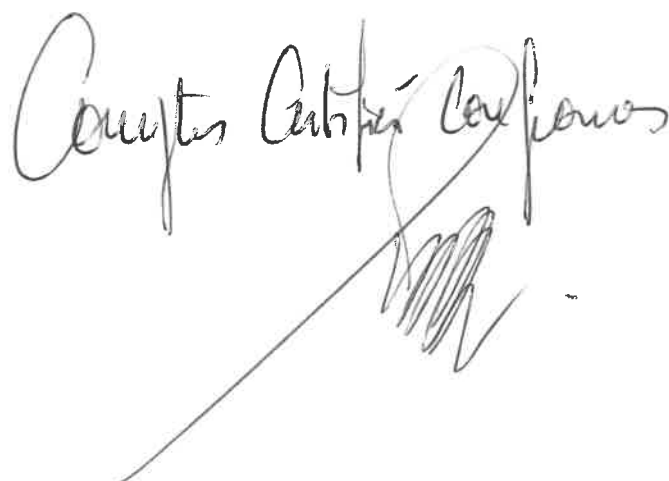 Comptes Certifiés Conformes